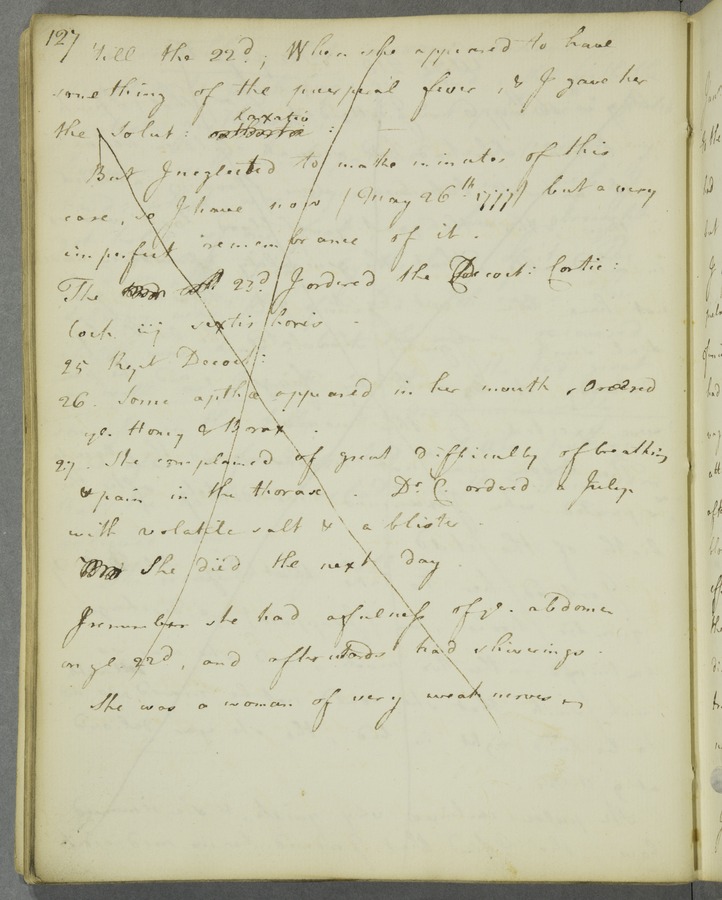 127
'till the 22d; When she appeared to have
something of the puerperal fever, & I gave her
the Solut: cathartic laxativ :
But I neglected to make minutes of this
case, so I have now (May 26th 1777) but a very
imperfect remembrance of it.
The 23d I ordered the Decoct: Cortic:
Coch. iij sextis horis.
25 Rept Decoct:
26. Some apthæ appeared in her mouth, Ordered
ye. Honey & Borax.
27. She complained of great difficulty of breathing
& pain in the thorax. Dr. C. ordered a Julep
with volatile salt & a blister.
She died the next day.
I remember she had a fulness of ye. abdomen
on ye. 22d, and afterwards had shiverings.
She was a woman of very weak nerves